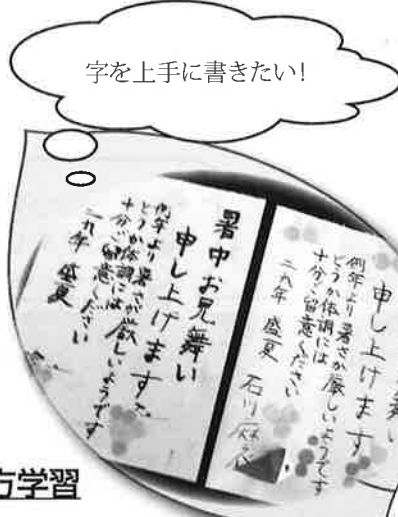 字を上手に書きたい!
暑中お見舞い
申し上げます
例年より暑さが厳しいようです
どうか体調には
十分ご留意ください
二九年 盛夏
舞い
申し上げます
例年より暑さが厳しいようです
どうか体調には
十分ご留意ください
二九年 盛夏 石川
方学習